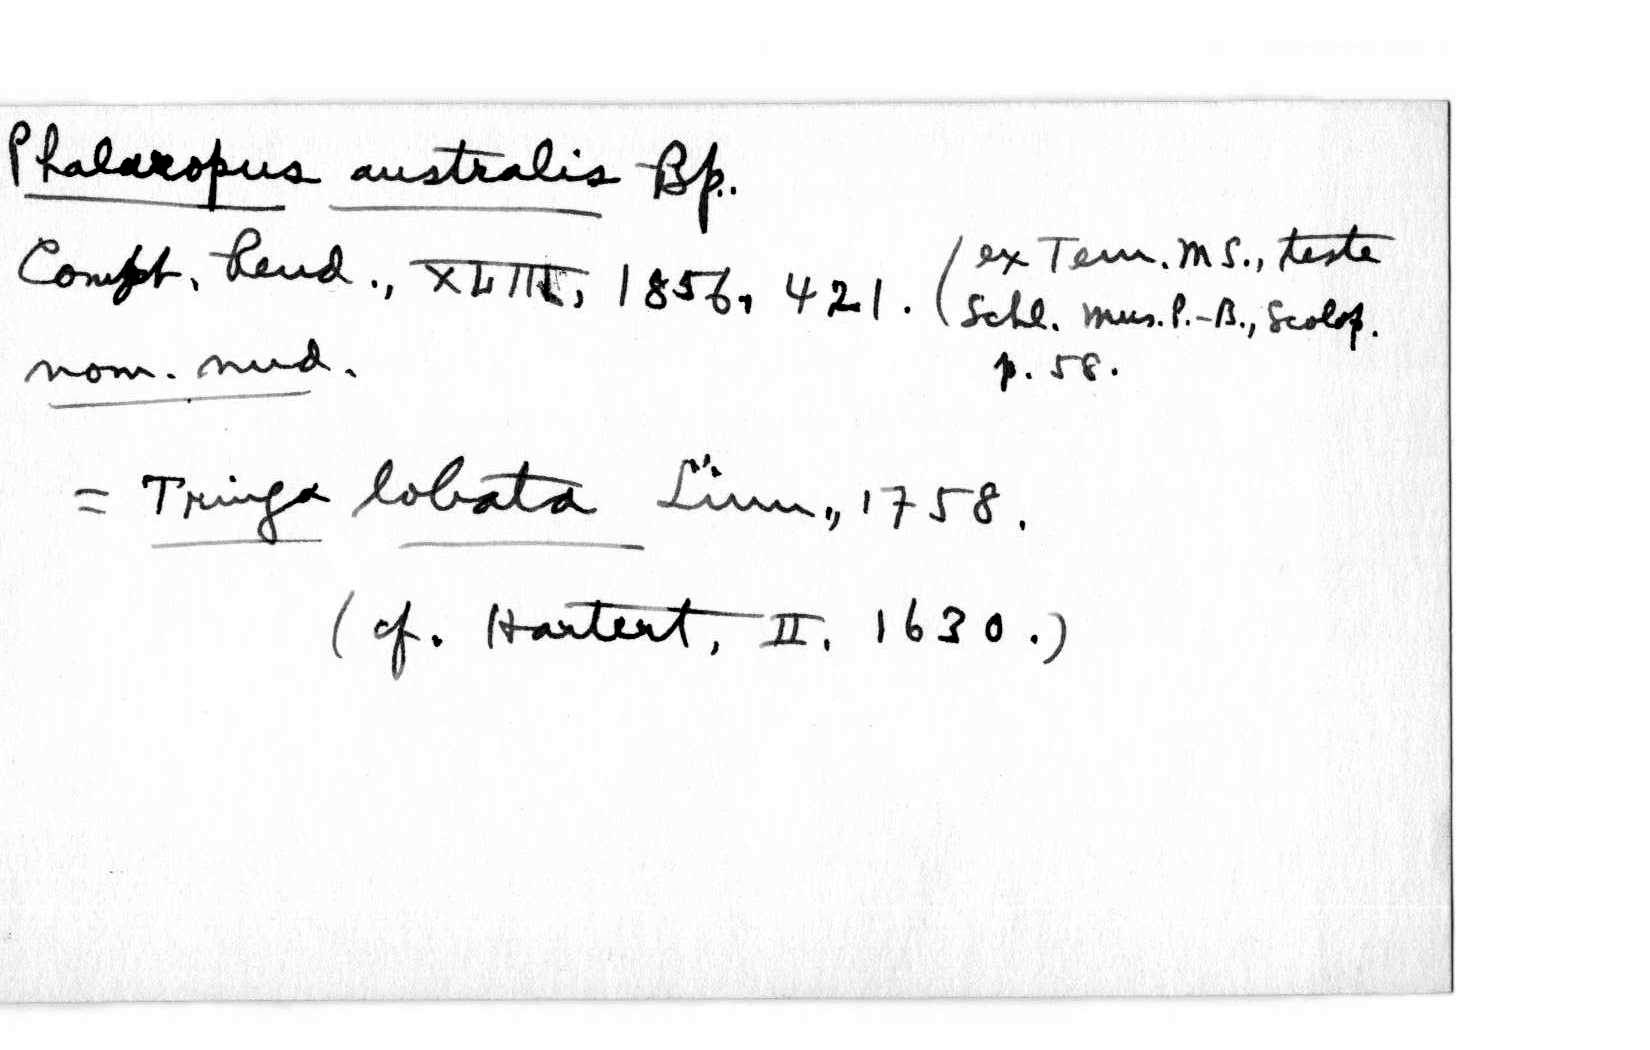 Phalaropus australis Bp.
Compt. Rend., XLIII, 1856, 421. (ex Tem. MS., teste
Schl. Mus. P.-B., Scolop.
p. 58.
nom. nud.
= Tringa lobata Linn., 1758.
(cf. Hartert, II. 1630.)